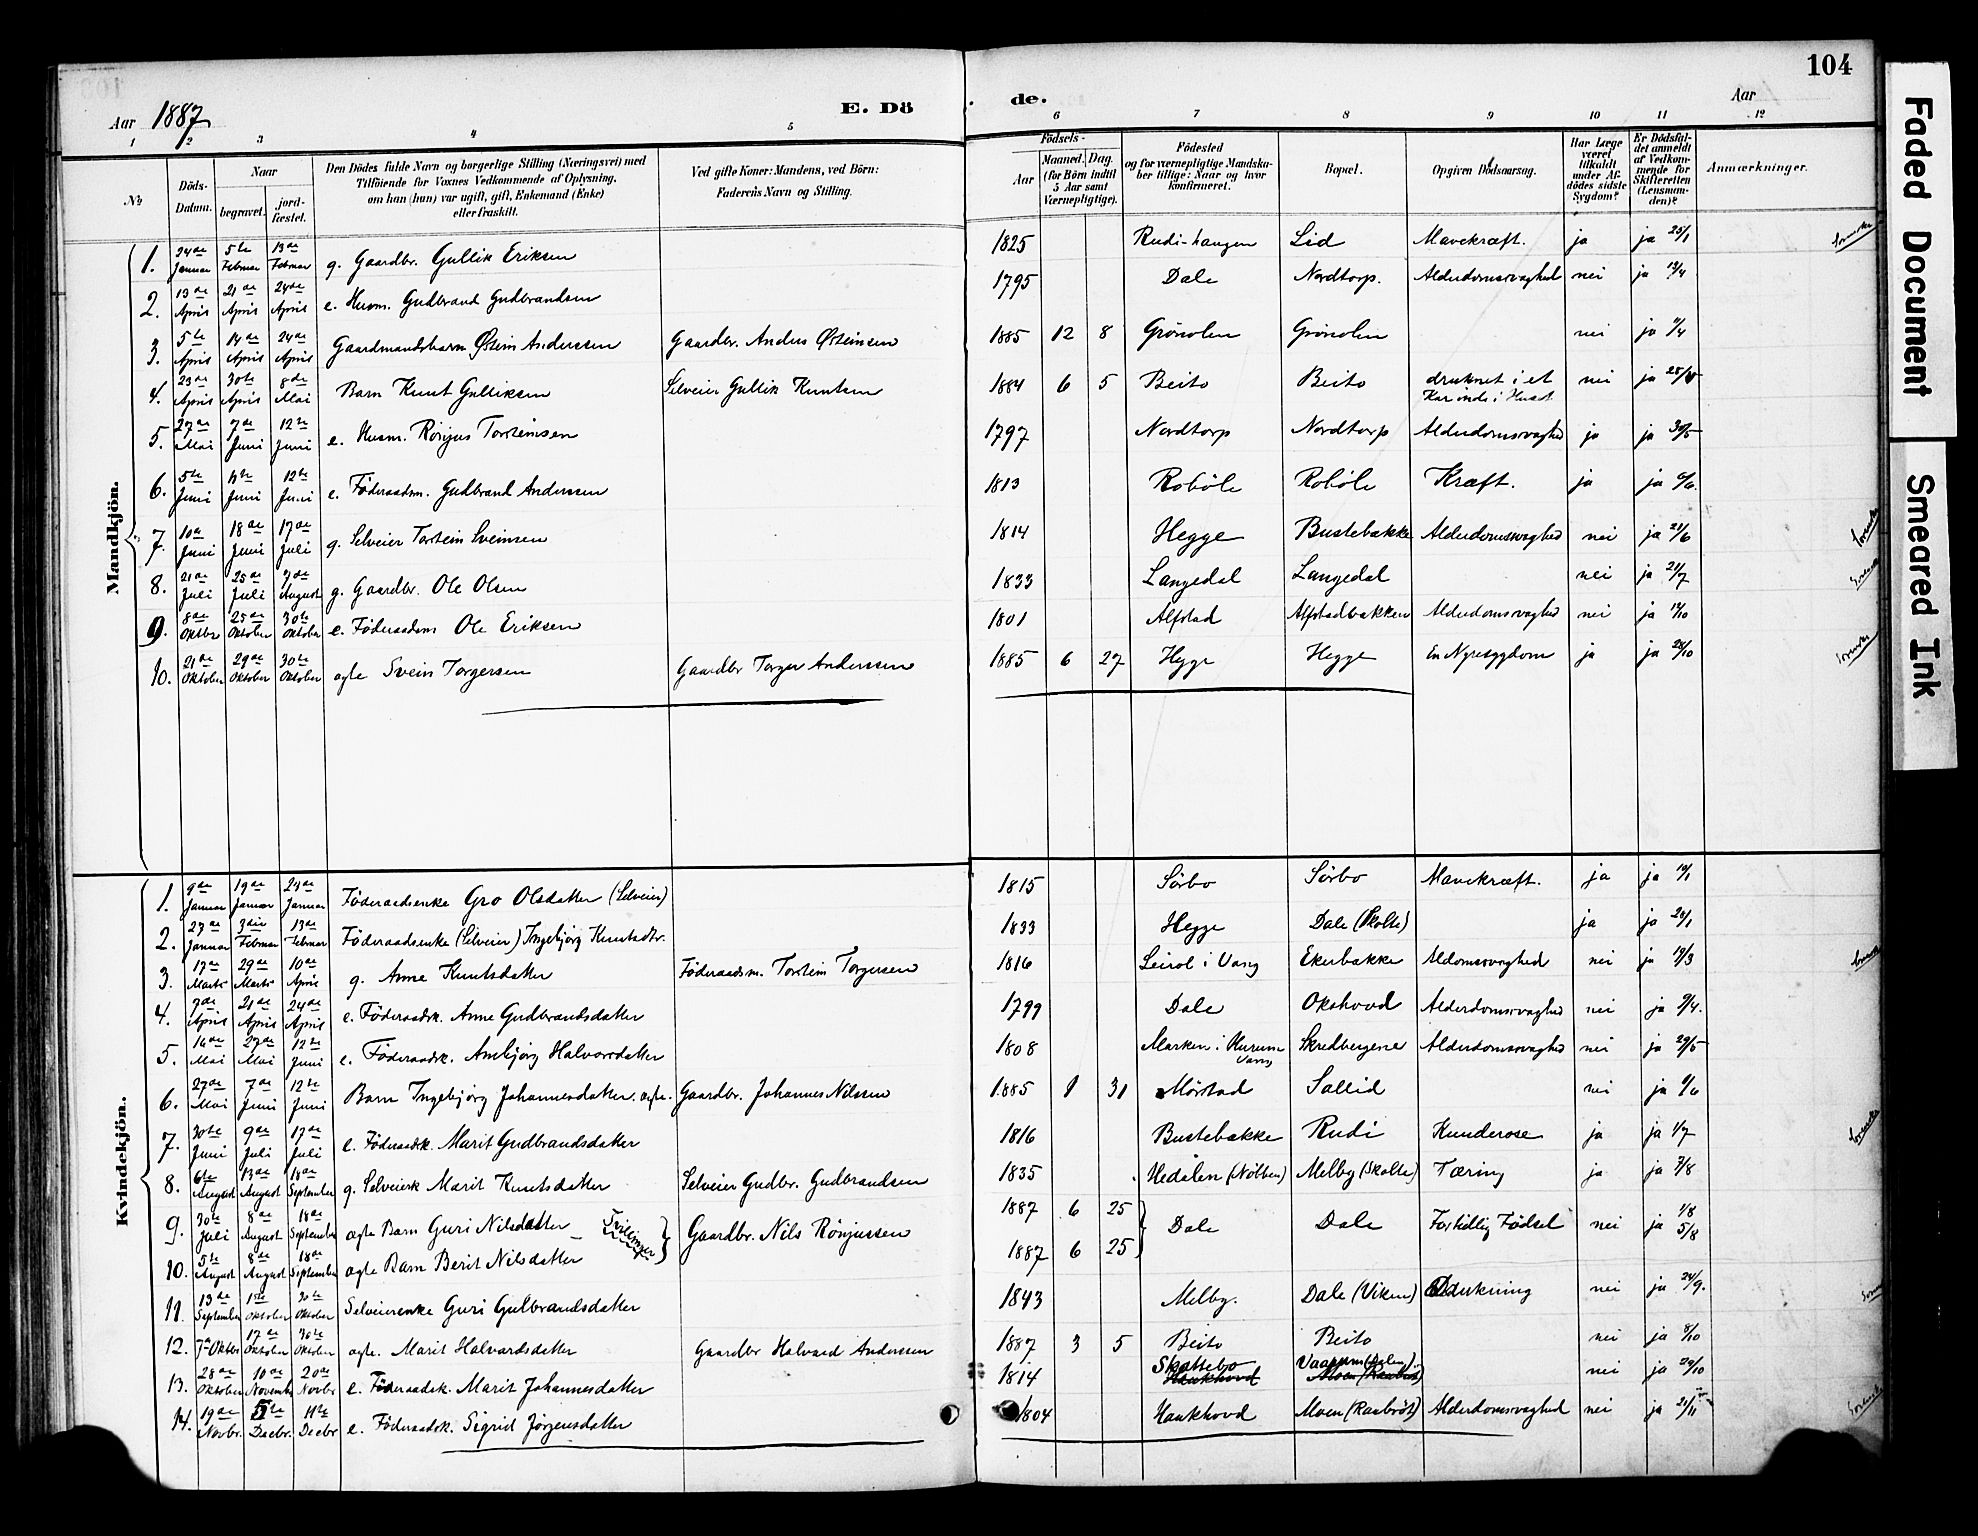 104
Aar 1887
E. Dö
de.
Aar
1 2 3 4 5 6 7 8 9 10 11 12
No
Döds-Datum.
Naar
begravet.
jord-fæstet.
Den Dödes fulde Navn og borgerlige Stilling (Næringsvei) med Tilföiende for Voxnes Vedkommende af Oplysning. om han (hun) var ugift, gift, Enkemand (Enke) eller fraskilt.
Ved gifte Koner: Mandens, ved Börn: Faderens Navn og Stilling.
Födsels-
Aar
Maaned. Dag. (for Börn indtil 5 Aar samt Værnepligtige).
Födested og for værnepligtige Mandskaber tillige: Naar og hvor konfirmeret.
Bopæl.
Opgiven Dödsaarsag.
Har Læge været tilkaldt under Afdödes sidste Sygdom?
Er Dödsfaldet anmeldt af Vedkommende for Skifteretten (Lensmanden)?
Anmærkninger.
Mandkjön.
1. 24de Januar 5te Februar 13de Februar g. Gaardbr. Gullik Eriksen 1825 Rudi-haugen Lid Mavekræft. ja ja 25/1
2. 13de April 21de April 24de April e. Husm. Gudbrand Gudbrandsen 1795 Dale Nordtorp. Alderdomssvaghed nei ja 19/4
3. 5te April 14de April 24de April Gaardmandsbarn Østein Anderssen Gaardbr. Anders Østeinsen 1885 12 8 Grönolen Grönolen nei ja 11/4
4. 23de April 30te April 8de Mai Barn Knut Gulliksen Selveier Gullik Knutsen 1884 6 5 Beito Beito druknet i et Kar inde i Huset nei ja 25/4
5. 27de Mai 7de Juni 12te Juni e. Husm. Rönjus Torsteinsen 1797 Nordtorp Nordtorp Alderdomssvaghed ja ja 30/5
6. 5te Juni 11te Juni 12te Juni e. Föderaadsm. Gudbrand Anderssen 1813 Roböle Roböle Kræft. ja ja 6/6.
7. 10de Juni 18de Juni 17de Juli g. Selveier Torstein Sveinsen 1814 Hegge Bustebakke Alderdomssvaghed nei ja 21/6
8. 21de Juli 25de Juli 7de August g. Gaardbr. Ole Olsen 1833 Langedal Langedal nei ja 21/7
9. 8de Oktbr 25de Oktober 30te Oktober e. Föderaadsm Ole Eriksen 1801 Alfstad Alfstadbakken Alderdomssvaghed nei ja 10/10
10. 21de Oktober 29de Oktober 30te Oktober ægte Svein Torgersen Gaardbr Torger Anderssen 1885 6 27 Hegge Hegge En Nyresygdom ja ja 28/10
Kvindekjön.
1. 9de Januar 19de Januar 24de Januar Föderaadsenke Gro Olsdatter (Selveier) 1815 Sörbo Sörbo Mavekræft. ja ja 10/1
2. 23de Januar 3die Februar 13de Februar Föderaadsenke (Selveier) Ingebjörg Knutsdtr. 1833 Hegge Dale (Skolte) ja ja 28/1
3. 17de Marts 29de Marts 10de April g. Anne Knutsdatter Föderaadsm. Torstein Torgersen 1816 Leirol i Vang Ekerbakke Aldomssvaghed nei ja 19/3
4. 7de April 21de April 24de April e. Föderaadsk. Anne Gudbrandsdatter 1799 Dale Okshovd Alderdomssvaghed nei ja 9/4.
5. 14de Mai 27de Mai 12te Juni e. Föderaadsk. Anebjörg Halvorsdatter 1808 Marken i Hurum Vang Skredbergene Alderdomssvaghed nei ja 29/5
6. 27de Mai 7de Juni 12te Juni Barn Ingebjörg Johannesdatter. ægte. Gaardbr. Johannes Nilssen 1885 1 31 Mörstad Sallid nei ja 6/6
7. 30te Juni 9de Juli 17de Juli e. Föderaadsk. Marit Gudbrandsdatter 1816 Bustebakke Rudi Kunderose ja ja 1/7
8. 6te August 13de August 18de September g. Selveiersk Marit Knutsdatter Selveier Gudbr. Gudbrandsen 1835 Hedalen (Nölben) Melby (Skolte) Tæring ja ja 7/8
9. 30te Juli 8de August 18de September ægte Barn Guri Nilsdatter Tvillinger Gaardbr. Nils Rönjussen 1887 6 25 Dale Dale Fortidlig Födsel nei ja 1/8 5/8
10. 5te August 8de August 18de September ægte Barn Berit Nilsdatter 1887 6 25
11. 13de September 1ste Oktober 30te Oktober Selveierenke Guri Gulbrandsdatter 1843 Melby. Dale (Viken) Drukning nei ja 24/9.
12. 7de Oktbr 17de Oktober 30te Oktober ægte. Marit Halvardsdatter Gaardbr Halvard Anderssen 1887 3 5 Beito Beito nei ja 8/10
13. 28de Oktober 10de Novembr 20de Novbr e. Föderaadsk. Marit Johannesdatter 1814 Skattebo Haukhovd Moen nei ja 29/10
14. 19de Novbr. 5te Decbr. 11te Decbr e. Föderaadsk. Sigrid Jörgensdatter 1804 Haukhovd Moen (Raabröt) Alderdomssvaghed nei ja 21/11
Faded Document
Smeared Ink